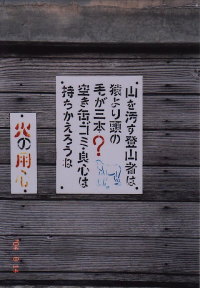 山を汚す登山者は
猿より頭の
毛が三本?
空き缶・ゴミ・良心は
持ちかえろうね
火の用心